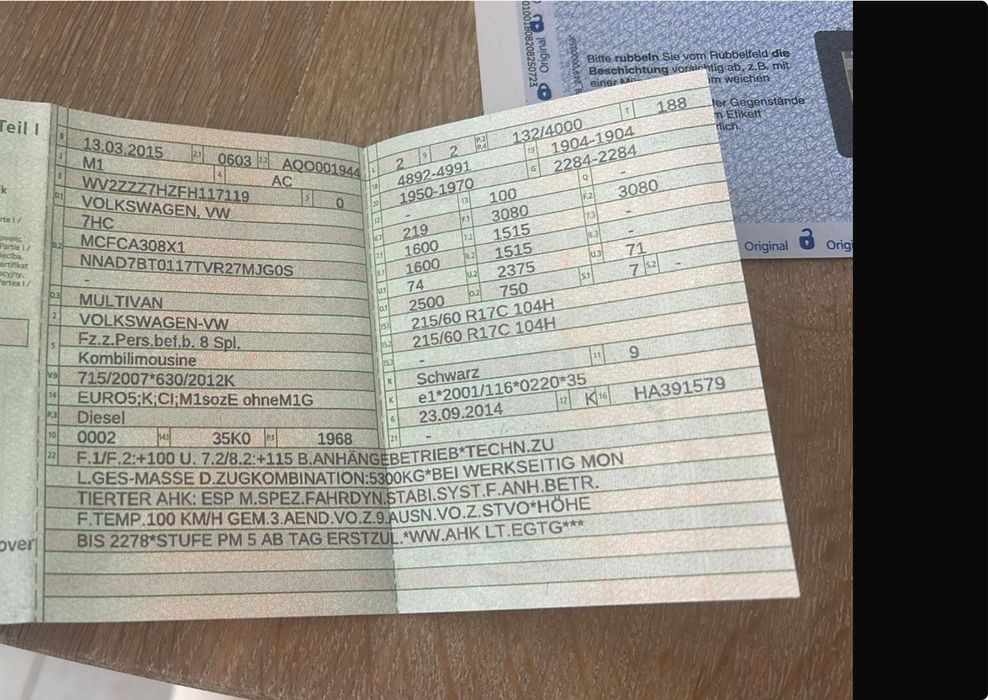 0100180820825072З
Original
Bitte rubbeln Sie vom Rubbelfeld die
Beschichtung vorsichtig ab, z.B. mit
einer weichen
Gegenstände
Etikett
Original
Teil I
B 13.03.2015 2.1 0603 2.2 AQO001944
J M1 4 AC
E WV2ZZZ7HZFH117119 3 0
D.1 VOLKSWAGEN, VW
7HC
D.2 MCFCA308X1
NNAD7BT0117TVR27MJG0S
-
D.3 MULTIVAN
2 VOLKSWAGEN-VW
5 Fz.z.Pers.bef.b. 8 Spl.
Kombilimousine
V.9 715/2007*630/2012K
14 EURO5;K;CI;M1sozE ohneM1G
P.3 Diesel
10 0002 14.1 35K0 P.1 1968
L 2 9 2 P.2 P.4 132/4000 T 188
18 4892-4991 19 1904-1904
20 1950-1970 G 2284-2284
12 - 13 100 Q -
V.7 219 F.1 3080 F.2 3080
7.1 1600 7.2 1515 7.3 -
8.1 1600 8.2 1515 8.3 -
U.1 74 U.2 2375 U.3 71
O.1 2500 O.2 750 S.1 7 S.2 -
15.1 215/60 R17C 104H
15.2 215/60 R17C 104H
15.3 -
R Schwarz 11 9
K e1*2001/116*0220*35
6 23.09.2014 17 K 16 HA391579
21 -
22 F.1/F.2:+100 U. 7.2/8.2:+115 B.ANHÄNGEBETRIEB*TECHN.ZU
L.GES-MASSE D.ZUGKOMBINATION:5300KG*BEI WERKSEITIG MON
TIERTER AHK: ESP M.SPEZ.FAHRDYN.STABI.SYST.F.ANH.BETR.
F.TEMP.100 KM/H GEM.3.AEND.VO.Z.9.AUSN.VO.Z.STVO*HÖHE
BIS 2278*STUFE PM 5 AB TAG ERSTZUL.*WW.AHK LT.EGTG***